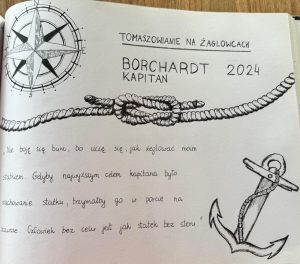 TOMASZOWIANIE NA ŻAGLOWCACH
BORCHARDT 2024
KAPITAN
„Nie boję się burz, bo uczę się, jak żeglować moim
statkiem. Gdyby najwyższym celem kapitana było
zachowanie statku, trzymałby go w porcie na
zawsze. Człowiek bez celu jest jak statek bez steru."